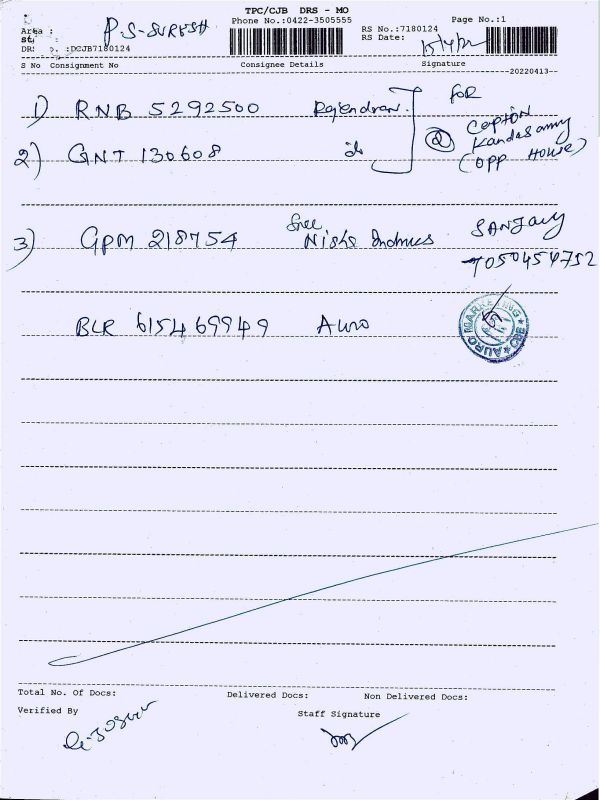 TPC/CJB DRS - MO
Phone No.:0422-3505555
Page No.:1
Area :
P.S-SURESH
RS No.:7180124
RS Date:
15/4/22
DR: :DCJB7180124
S No Consignment No Consignee Details Signature
20220413
1) RNB 5292500 Rajendran. FOR
@ Capton
Kandasamy
(OPP House)
2) GNT 130608 do
3) GPM 218754 Sree Nisha SANJAY
7050454752
BLR 615469949 Auro
AURO MARKETING CBE
Total No. Of Docs: Delivered Docs: Non Delivered Docs:
Verified By Staff Signature